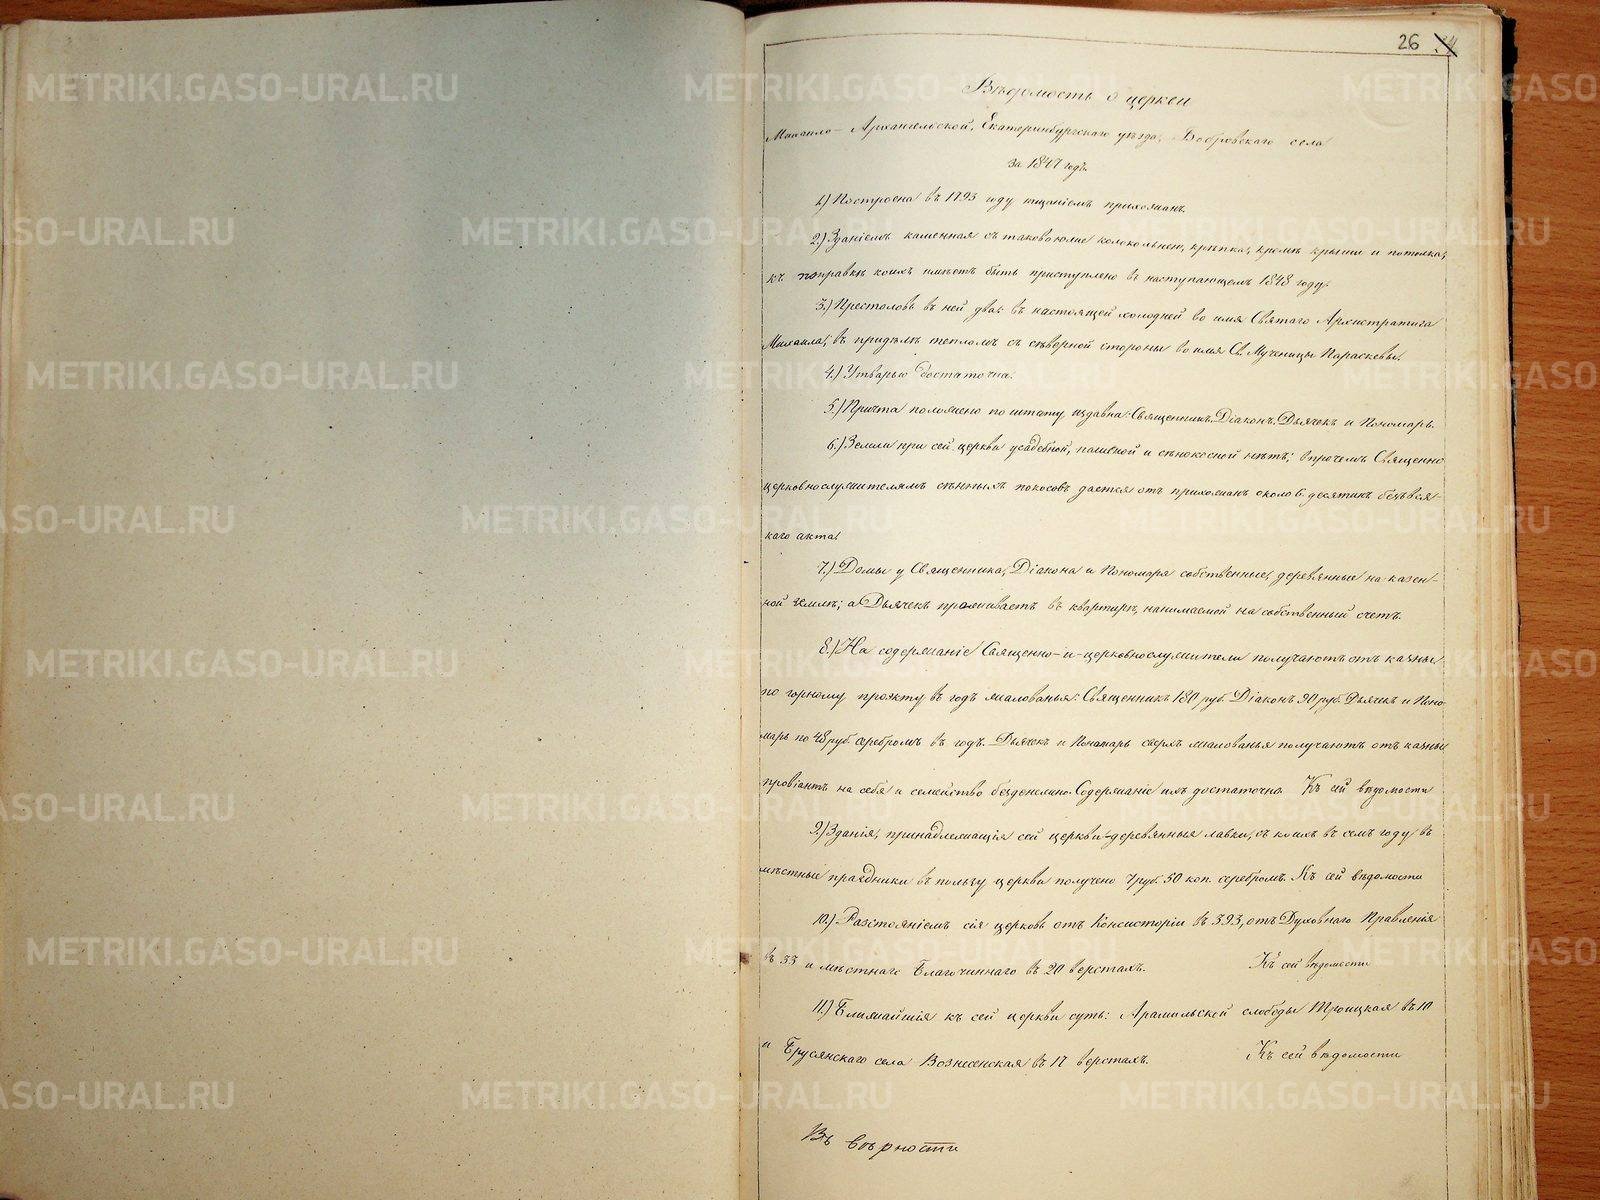 26 24
Вѣдомость о церкви
Михаило-Архангельской, Екатеринбургскаго уѣзда, Бобровскаго села
за 1847 годъ.
1.) Построена въ 1793 году тщаніемъ прихожанъ.
2.) Зданіемъ каменная съ таковоюже колокольнею, крѣпка, кромѣ крыши и потолка,
къ поправкѣ коихъ имѣетъ быть приступлено въ наступающемъ 1848 году.
3.) Престоловъ въ ней два: въ настоящей холодной во имя Святаго Архистратига
Михаила; въ придѣлѣ тепломъ съ сѣверной стороны во имя Св. Мученицы Параскевы.
4.) Утварью достаточна.
5.) Причта положено по штату издавна: Священникъ, Діаконъ, Дьячекъ и Пономарь.
6.) Земли при сей церкви усадебной, пашенной и сѣнокосной нѣтъ; впрочемъ Священно
церковнослужителямъ сѣнныхъ покосовъ дается отъ прихожанъ около 6 десятинъ безъ вся-
каго акта.
7.) Домы у Священника, Діакона и Пономаря собственные, деревянные на казен-
ной землѣ; а Дьячекъ проживаетъ въ квартирѣ, нанимаемой на собственный счетъ.
8.) На содержаніе Священно-и-церковнослужители получаютъ отъ казны
по горному проэкту въ годъ жалованья: Священникъ 180 руб. Діаконъ 90 руб. Дьячекъ и Поно-
марь по 48 руб. серебромъ въ годъ. Дьячекъ и Пономарь сверхъ жалованья получаютъ отъ казны
провіантъ на себя и семейство безденежно. Содержаніе ихъ достаточно. Къ сей вѣдомости
9.) Зданія, принадлежащія сей церкви-деревянныя лавки, съ коихъ въ семъ году въ
мѣстные праздники въ пользу церкви получено 7 руб. 50 коп. серебромъ. Къ сей вѣдомости
10.) Разстояніемъ сія церковь отъ Консисторіи въ 393, отъ Духовнаго Правленія
въ 33 и мѣстнаго Благочиннаго въ 20 верстахъ. Къ сей вѣдомости
11.) Ближайшія къ сей церкви суть: Арамильской слободы Троицкая въ 10
и Брусянскаго села Вознесенская въ 17 верстахъ. Къ сей вѣдомости
Въ вѣрности
METRIKI.GASO-URAL.RU